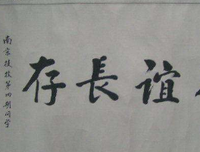 誼長存
南京陸校第四期同学